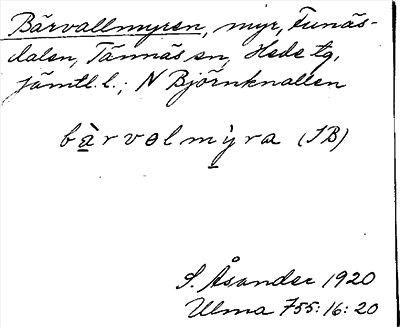 Bärvallmyren, myr, Funäs-
dalen, Tännäs sn, Hede tg,
jämtl. l.; N Björnknallen
bàrvɵlmỳra (JB)
S. Åsander 1920
Ulma 755:16:20